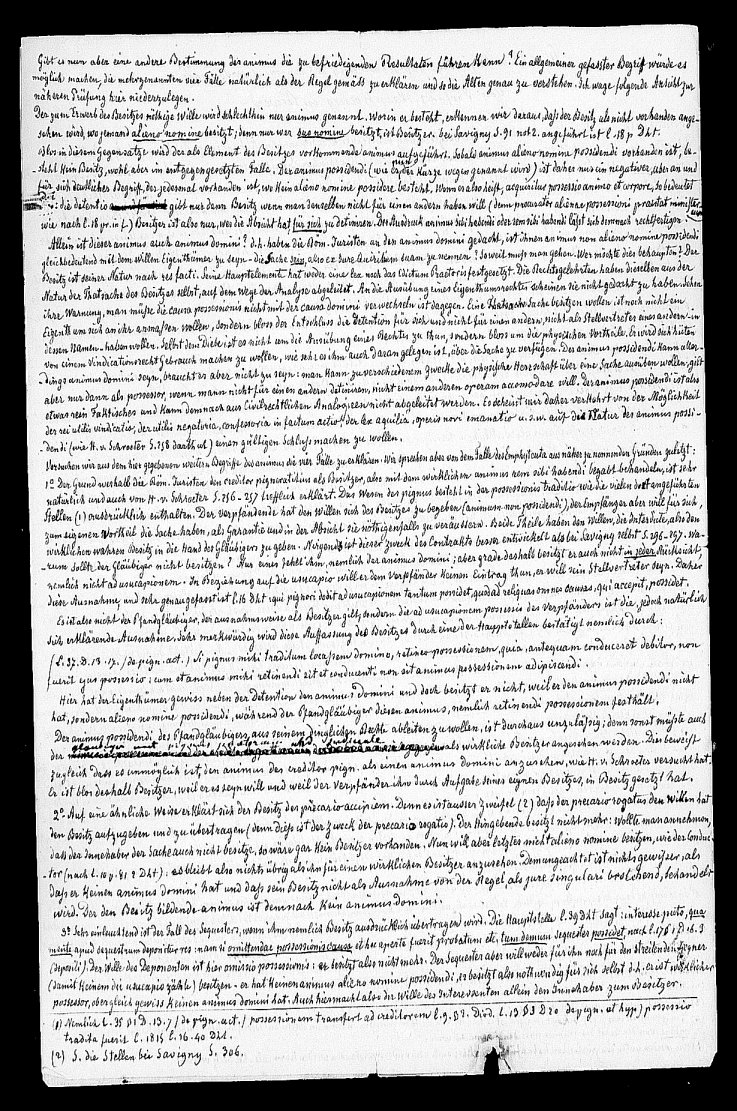 Gibt es nun aber eine andere Bestimmung des animus die zu befriedigenden Resultaten führen kann? Ein allgemeiner gefasster Begriff würde es
möglich machen, die mehrgenannten vier Fälle natürlich als der Regel gemäss zu erklären und so die Alten genau zu verstehen. Ich wage folgende Ansicht zur
näheren Prüfung hier niederzulegen.
Der zum Erwerb des Besitzes nöthige Wille wird schlechthin nur animus genannt. Worin er besteht, erkennen wir daraus, daß der Besitz als nicht vorhanden ange-
sehen wird, wo jemand alieno nomine besitzt, denn nur wer suo nomine besitzt, ist Besitzer. bei Savigny S. 91 not 2. angeführt ist l. 18 pr D ht.
Blos in diesem Gegensatze wird der als Element des Besitzes vorkommende animus aufgeführt. Sobald animus alieno nomine possidendi vorhanden ist, be-
steht kein Besitz, wohl aber im entgegengesetzten Falle. Der animus possidendi (wie er der Kürze wegen genannt wird) ist daher nur ein negativer, aber an und
für sich deutlicher Begriff, der jedesmal vorhanden ist, wo kein alieno nomine possidere besteht. Wenn es also heißt, acquiritur possessio animo et corpore, so bedeutet
die detentio gibt nur dann Besitz wenn man denselben nicht für einen andern haben will (dem procurator alienae possessioni praestat ministerium
wie nach l. 18 pr. in f.) Besitzer ist also nur, wer die Absicht hat für sich zu detiniren. Der Ausdruck animus sibi habendi oder rem sibi habendi läßt sich demnach rechtfertigen.
Allein ist dieser animus auch animus domini? d.h. haben die Röm. Juristen an den animus domini gedacht, ist ihnen animus non alieno nomine possidendi
gleichbedeutend mit dem Willen Eigenthümer zu seyn – die Sache sein, also ex jure Quiritium suam zu nennen? So weit muß man gehen. Wer möchte dies behaupten? Der
Besitz ist seiner Natur nach res facti. Seine Hauptelemente hat weder eine lex noch das Edictum Praetoris festgesetzt. Die Rechtsgelehrten haben dieselben aus der
Natur der Thatsache des Besitzes selbst, auf dem Wege der Analyse abgeleitet. An die Ausübung eines Eigenthumsrechtes scheinen sie nicht gedacht zu haben. Schon
ihre Warnung, man müße die causa possessionis nicht mit der causa domini verwechseln ist dagegen. Eine Sache besitzen wollen ist noch nicht ein
Eigenthum sich an ihr anmaßen wollen, sondern blos der Entschluss die Detention für sich und nicht für einen andern, nicht als Stellvertreter eines andern – in
dessen Namen – haben wollen. Selbst dem Diebe ist es nicht um die Ausübung eines Rechtes zu thun, sondern blos um die physischen Vortheile. Er wird sich hüten
von einem Vindicationsrecht Gebrauch machen zu wollen, wie sehr es ihm auch daran gelegen ist, über die Sache zu verfügen. Der animus possidendi kann aller-
dings animus domini seyn, braucht es aber nicht zu seyn: man kann zu verschiedenem Zwecke die physische Herrschaft über eine Sache ausüben wollen, gilt
aber nur dann als possessor, wenn man nicht für einen andern detiniren, nicht einem anderen operam accomodare will. Der animus possidendi ist also
etwas rein Faktisches und kann demnach aus Civilrechtlichen Analogieen nicht abgeleitet werden. Es scheint mir daher verkehrt von der Möglichkeit
der rei utilis vindicatio, der utilis negatoria, confessoria in factum actio, der lex aquilia, operis novi u.s.w. auf die Natur des animus possi-
dendi (wie H. v. Schroeter S. 258 darthut) einen gültigen Schluß machen zu wollen.
Versuchen wir aus dem hier gegebenen weitern Begriffe des animus die vier Fälle zu erklären. Wir sprechen aber von dem Falle des Emphyteuta aus näher zu nennenden Gründen zuletzt:
1º Der Grund weshalb die Röm. Juristen den creditor pignoratitius als Besitzer, also mit dem wirklichen animus rem sibi habendi begabt behandeln, ist sehr
natürlich und auch von H. v. Schroeter S. 256-257 trefflich erklärt. Das Wesen des pignus besteht in der possessionis traditio wie die vielen dort angeführten
Stellen (1) ausdrücklich enthalten. Der Verpfändende hat den Willen sich des Besitzes zu begeben (animum non possidendi), der Empfänger aber will für sich,
zum eigenen Vortheil die Sache haben, als Garantie und in der Absicht sie nöthigenfalls zu veräussern. Beide Theile haben den Willen, die Interdicte, also den
wirklichen wahren Besitz in die Hand des Gläubigers zu geben. Nirgends ist dieser Zweck des Contrakts besser entwickelt als bei Savigny selbst S. 296-297. Wa-
rum sollte der Gläubiger nicht besitzen? Nur eines fehlt ihm, nemlich der animus domini; aber grade deshalb besitzt er auch nicht in jeder Rücksicht,
nemlich nicht ad usucapionem. In Beziehung auf die usucapio will er dem Verpfänder keinen Eintrag thun, er will sein Stellvertreter seyn. Daher
diese Ausnahme, und sehr genau gefasst ist l. 16 D ht: qui pignori dedit ad usucapionem tantum possidet, quod ad reliquas omnes causas, qui accepit, possidet.
Es ist also nicht der Pfandgläubiger, der ausnahmsweise als Besitzer gilt, sondern die ad usucapionem possessio des Verpfänders ist die, jedoch natürlich
sich erklärende Ausnahme. Sehr merkwürdig wird diese Auffassung des Besitzes durch eine der Hauptstellen bestätigt nemlich durch:
(L. 37. D. 13. 17. / de pign. act.) Si pignus mihi traditum locassem domino, retineo possessionem, quia, antequam conduceret debitor, non
fuerit ejus possessio: cum et animus mihi retinendi sit et conducenti non sit animus possessionem adipiscendi.
Hier hat der Eigenthümer gewiss neben der Detention den animus domini und doch besitzt er nicht, weil er den animus possidendi nicht
hat, sondern alieno nomine possidendi, während der Pfandgläubiger diesen animus, nemlich retinendi possessionem festhält.
Der animus possidendi des Pfandgläubigers, aus seinem dinglichen Rechte ableiten zu wollen, ist durchaus unzulässig; denn sonst müßte auch
der als wirkliche Besitzer angesehen werden. Dies beweist
zugleich dass es unmöglich ist, den animus des creditor pign. als einen animus domini anzusehen, wie H. v. Schroeter versucht hat.
Er ist blos deshalb Besitzer, weil er es seyn will und weil der Verpfänder ihn durch Aufgabe seines eignen Besitzes, in Besitz gesetzt hat.
2º. Auf eine ähnliche Weise erklärt sich der Besitz des precario accipiens. Denn es ist ausser Zweifel (2) daß der precario rogatus den Willen hat
den Besitz aufzugeben und zu übertragen (denn dieß ist der Zweck der precario rogatio). Der Hingebende besitzt nicht mehr: wollte man annehmen,
dass der Innehaber der Sache auch nicht besitze, so wäre gar kein Besitzer vorhanden. Nun will aber letztes nicht alieno nomine besitzen, wie der Conduc-
tor (nach l. 10 § 1 2 D ht): es bleibt also nichts übrig als ihn für einen wirklichen Besitzer anzusehen Demungeachtet ist nichts gewisser, als
daß er keinen animus domini hat und daß sein Besitz nicht als Ausnahme von der Regel als jure singulari bestehend, behandelt
wird. Der den Besitz bildende animus ist demnach kein animus domini.
3º Sehr einleuchtend ist der Fall des Sequesters, wenn ihm nemlich Besitz ausdrücklich übertragen wird. Die Hauptstelle l. 39 D ht sagt: interesse puto, qua
mente apud sequestrum deponitur res: nam si omittendae possessionis causa et hoc aperte fuerit probatum etc, tum demum sequester possidet, nach l. 17 § 1 D. 16. 3
(depositi). Der Wille des Deponenten ist hier omissio possessionis: er besitzt also nicht mehr. Der Sequester aber will weder für ihn noch für den streitenden Gegner
(damit keinem die usucapio zähle) besitzen – er hat keinen animus alieno nomine possidendi, er besitzt also nothwendig für sich selbst d.h. er ist wirklicher
possessor, obgleich gewiss keinen animus domini hat. Auch hier macht also der Wille des Interessenten allein den Innehaber zum Besitzer.
(1) Nemlich L. 35 § 1 D. 13. 7 / de pign. act. / possessionem transfert ad creditorem l. 9. § 2. D. id. L. 13 § 3 D 20 de pign. et hyp.) possessio
tradita fuerit l. 1815 l. 36. 40 D ht.
(2) S. die Stellen bei Savigny S. 306.